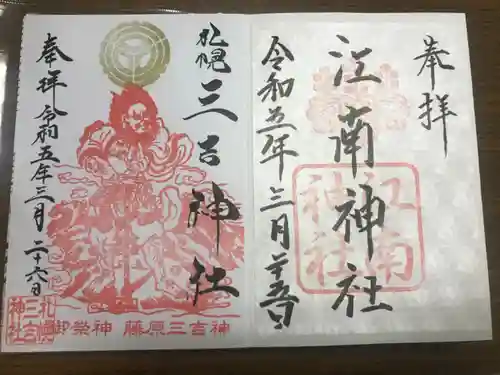 奉拝
江南神社
江南神社
令和五年三月二十五日
札幌三吉神社
奉拝 令和五年三月二十六日
札幌三吉神社
御祭神 藤原三吉神